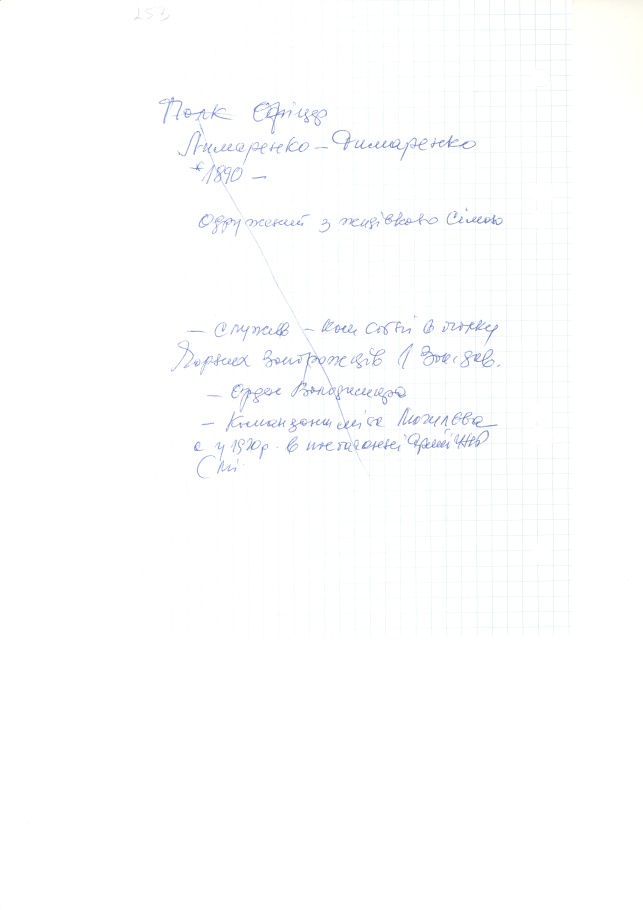 253
Полк Офіцер
Лимаренко – Димаренко
*1890 –
Одружений з жидівкою Сімою
– Служив – Ком Сотні в полку
Чорних Запорожців 1 Зап. див.
– Орден Володимира
– Комендант міста Могилєва
а у 1920 р. в постачанні Армії УНР